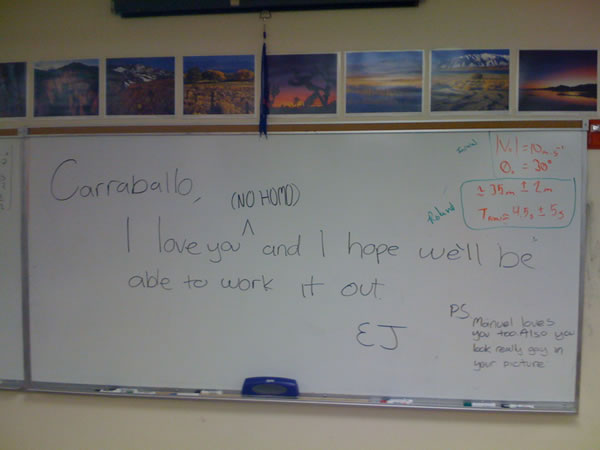 Carraballo,
(NO HOMO)
I love you ^ and I hope we'll be
able to work it out.
EJ
PS
Manuel loves
you too. Also you
look really gay in
your picture
= 10 m·s⁻¹
= 30°
≃ 35m ± 2m